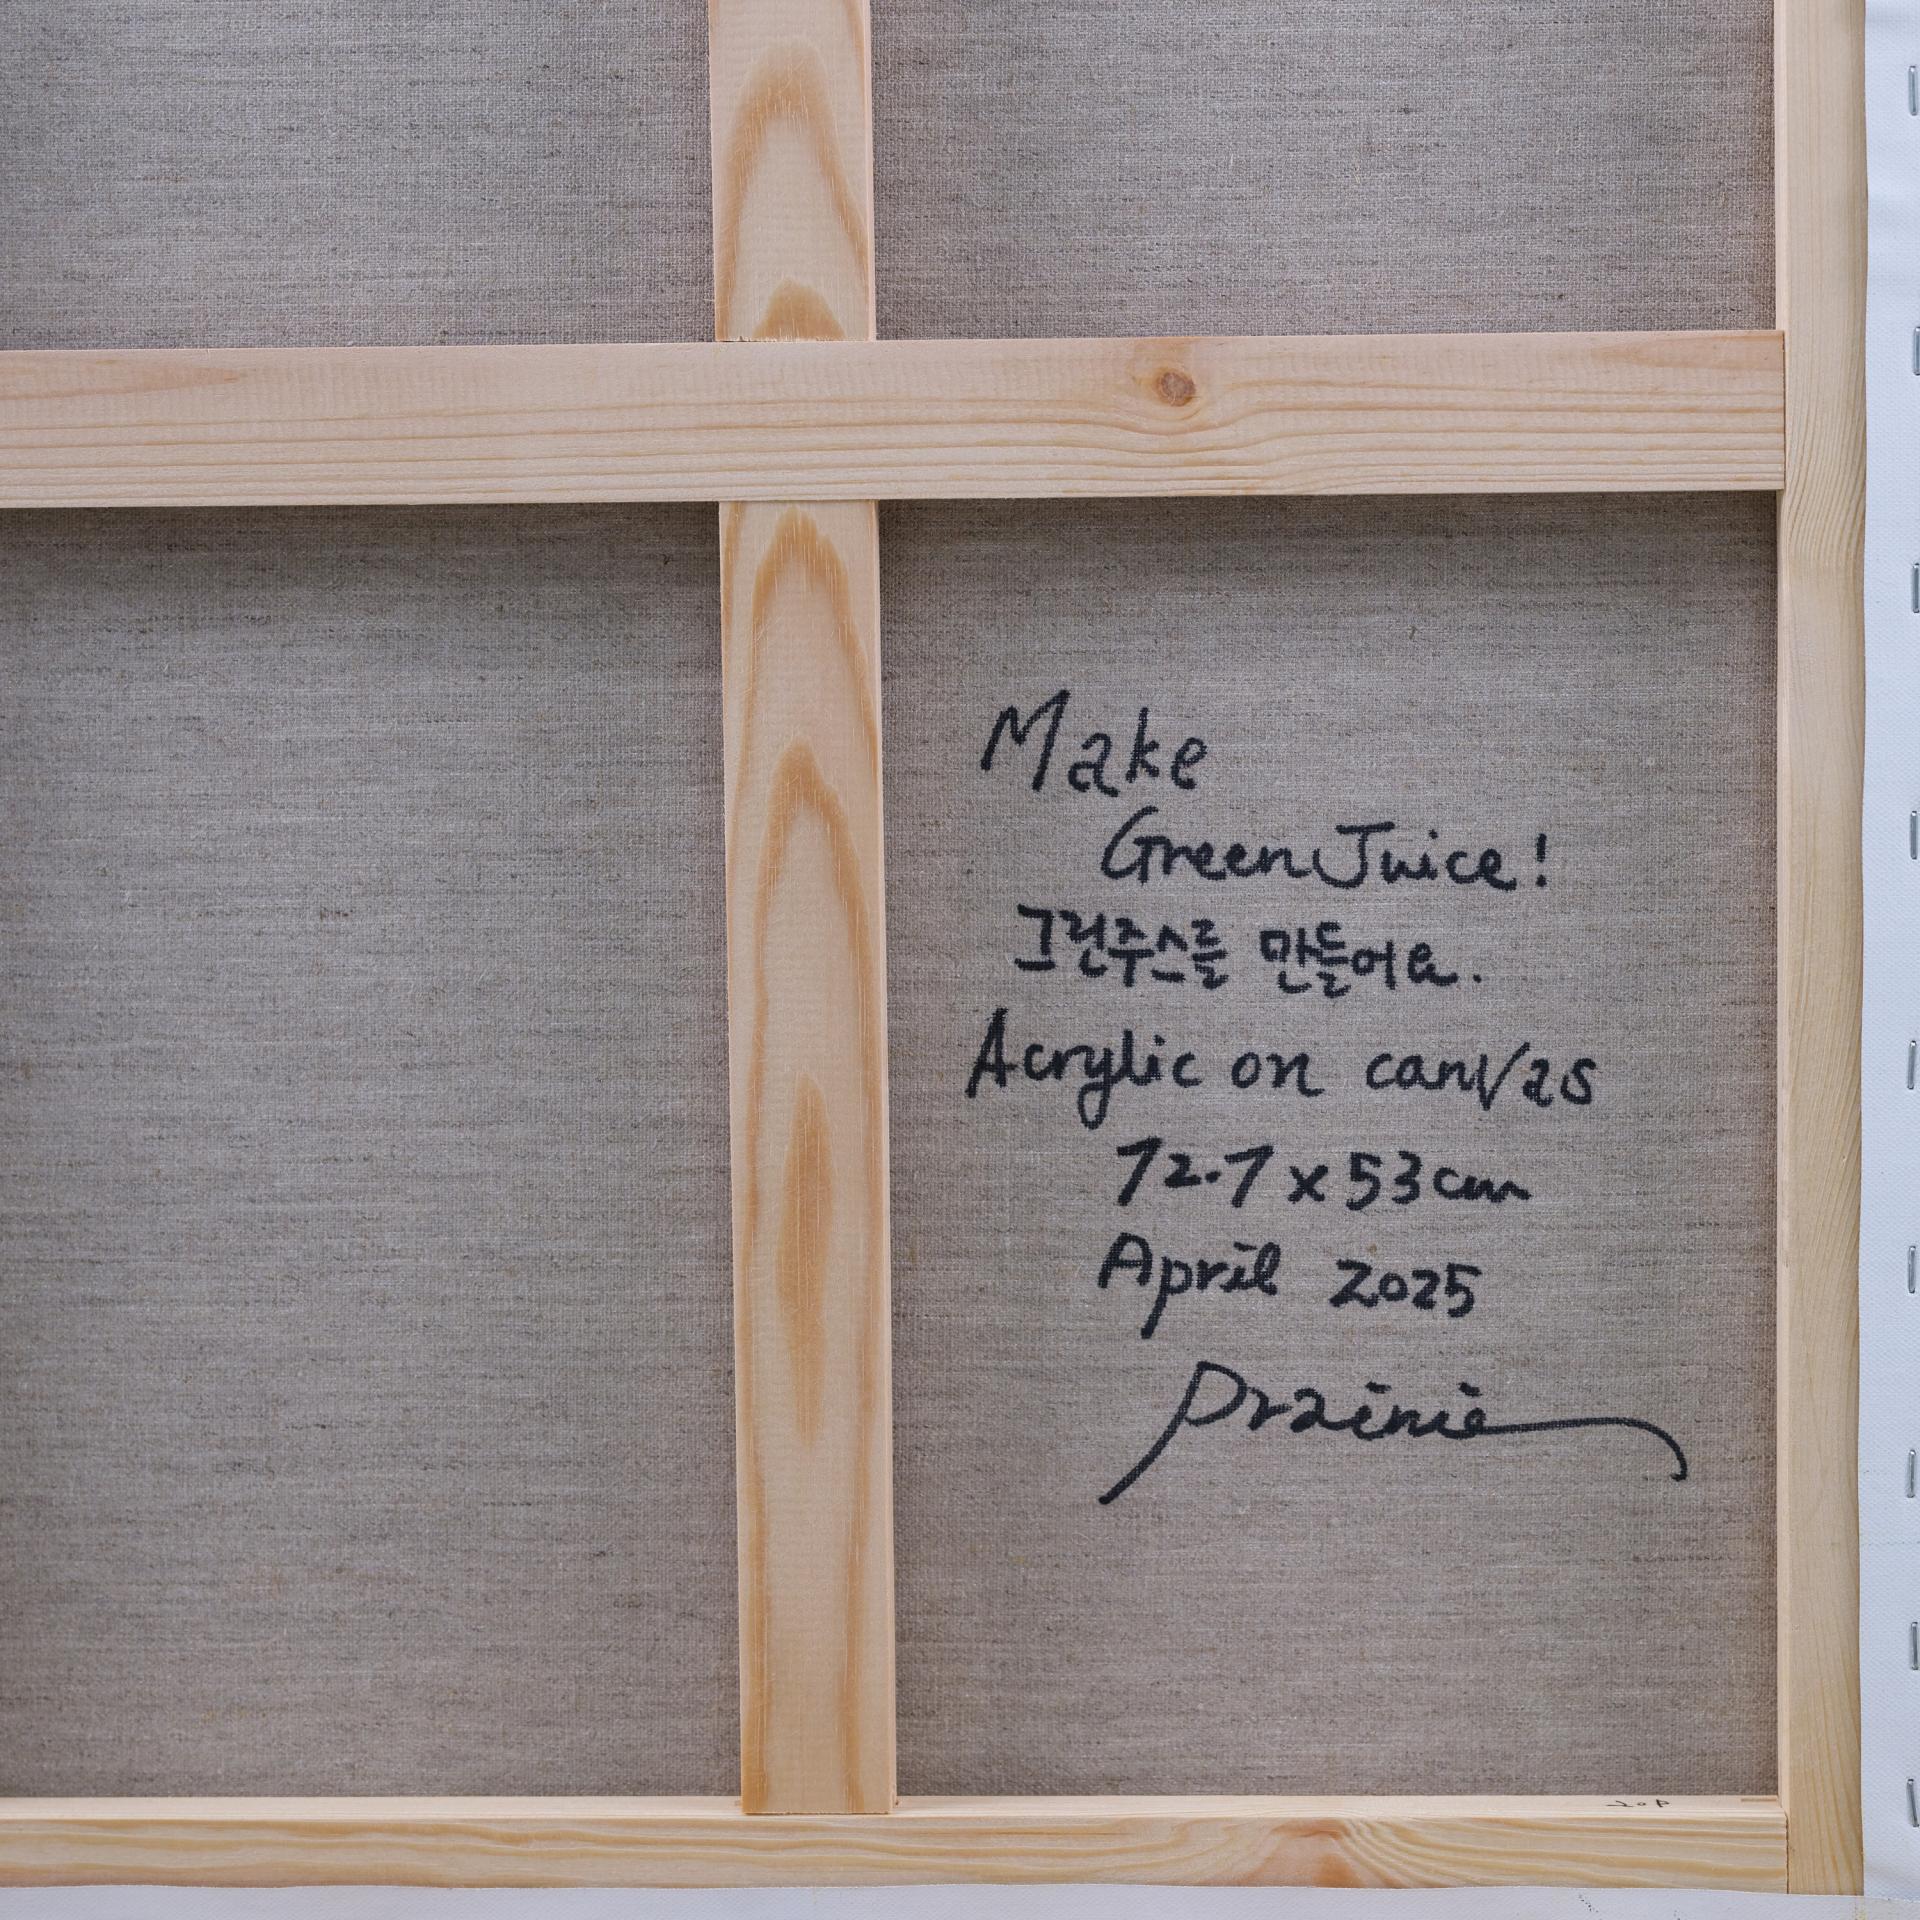 Make
Green Juice!
그린주스를 만들어요.
Acrylic on canvas
72.7 x 53cm
April 2025
Prairie
20P